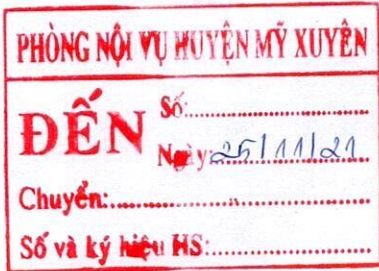 PHÒNG NỘI VỤ HUYỆN MỸ XUYÊN
ĐẾN
Số:....................
Ngày: 25/11/21
Chuyển:....................
Số và ký hiệu HS:....................